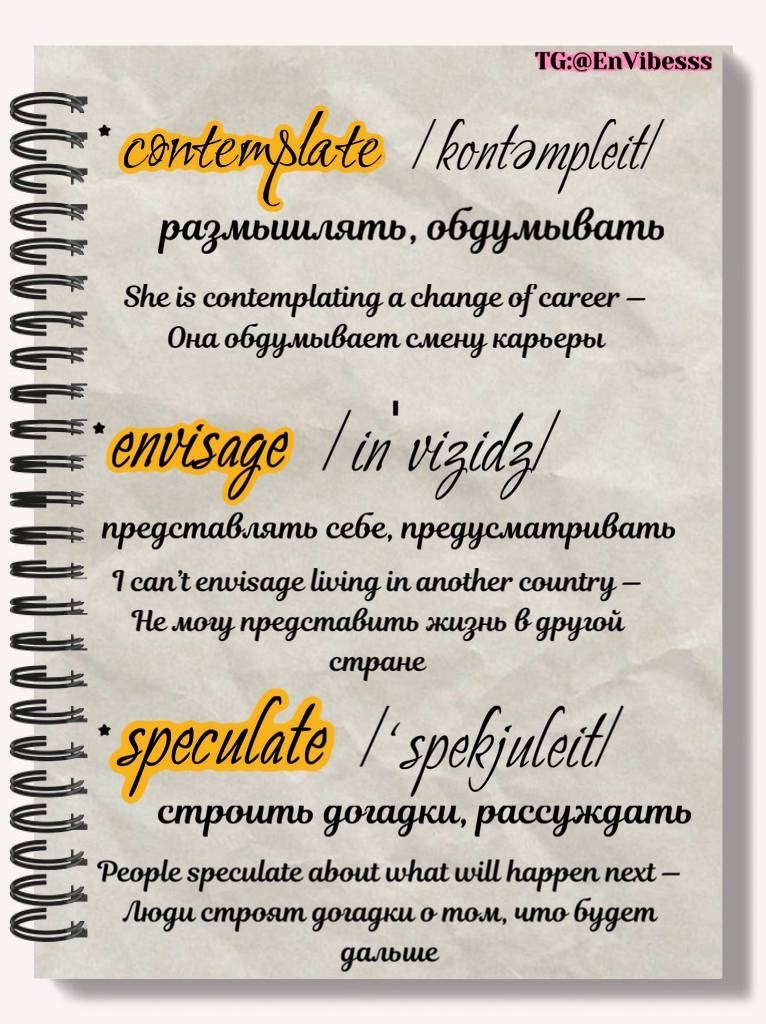 TG:@EnVibesss
* contemplate /kontəmpleit/
размышлять, обдумывать
She is contemplating a change of career –
Она обдумывает смену карьеры
* envisage /inˈvizidʒ/
представлять себе, предусматривать
I can't envisage living in another country –
Не могу представить жизнь в другой
стране
* speculate /‘spekjuleit/
строить догадки, рассуждать
People speculate about what will happen next –
Люди строят догадки о том, что будет
дальше